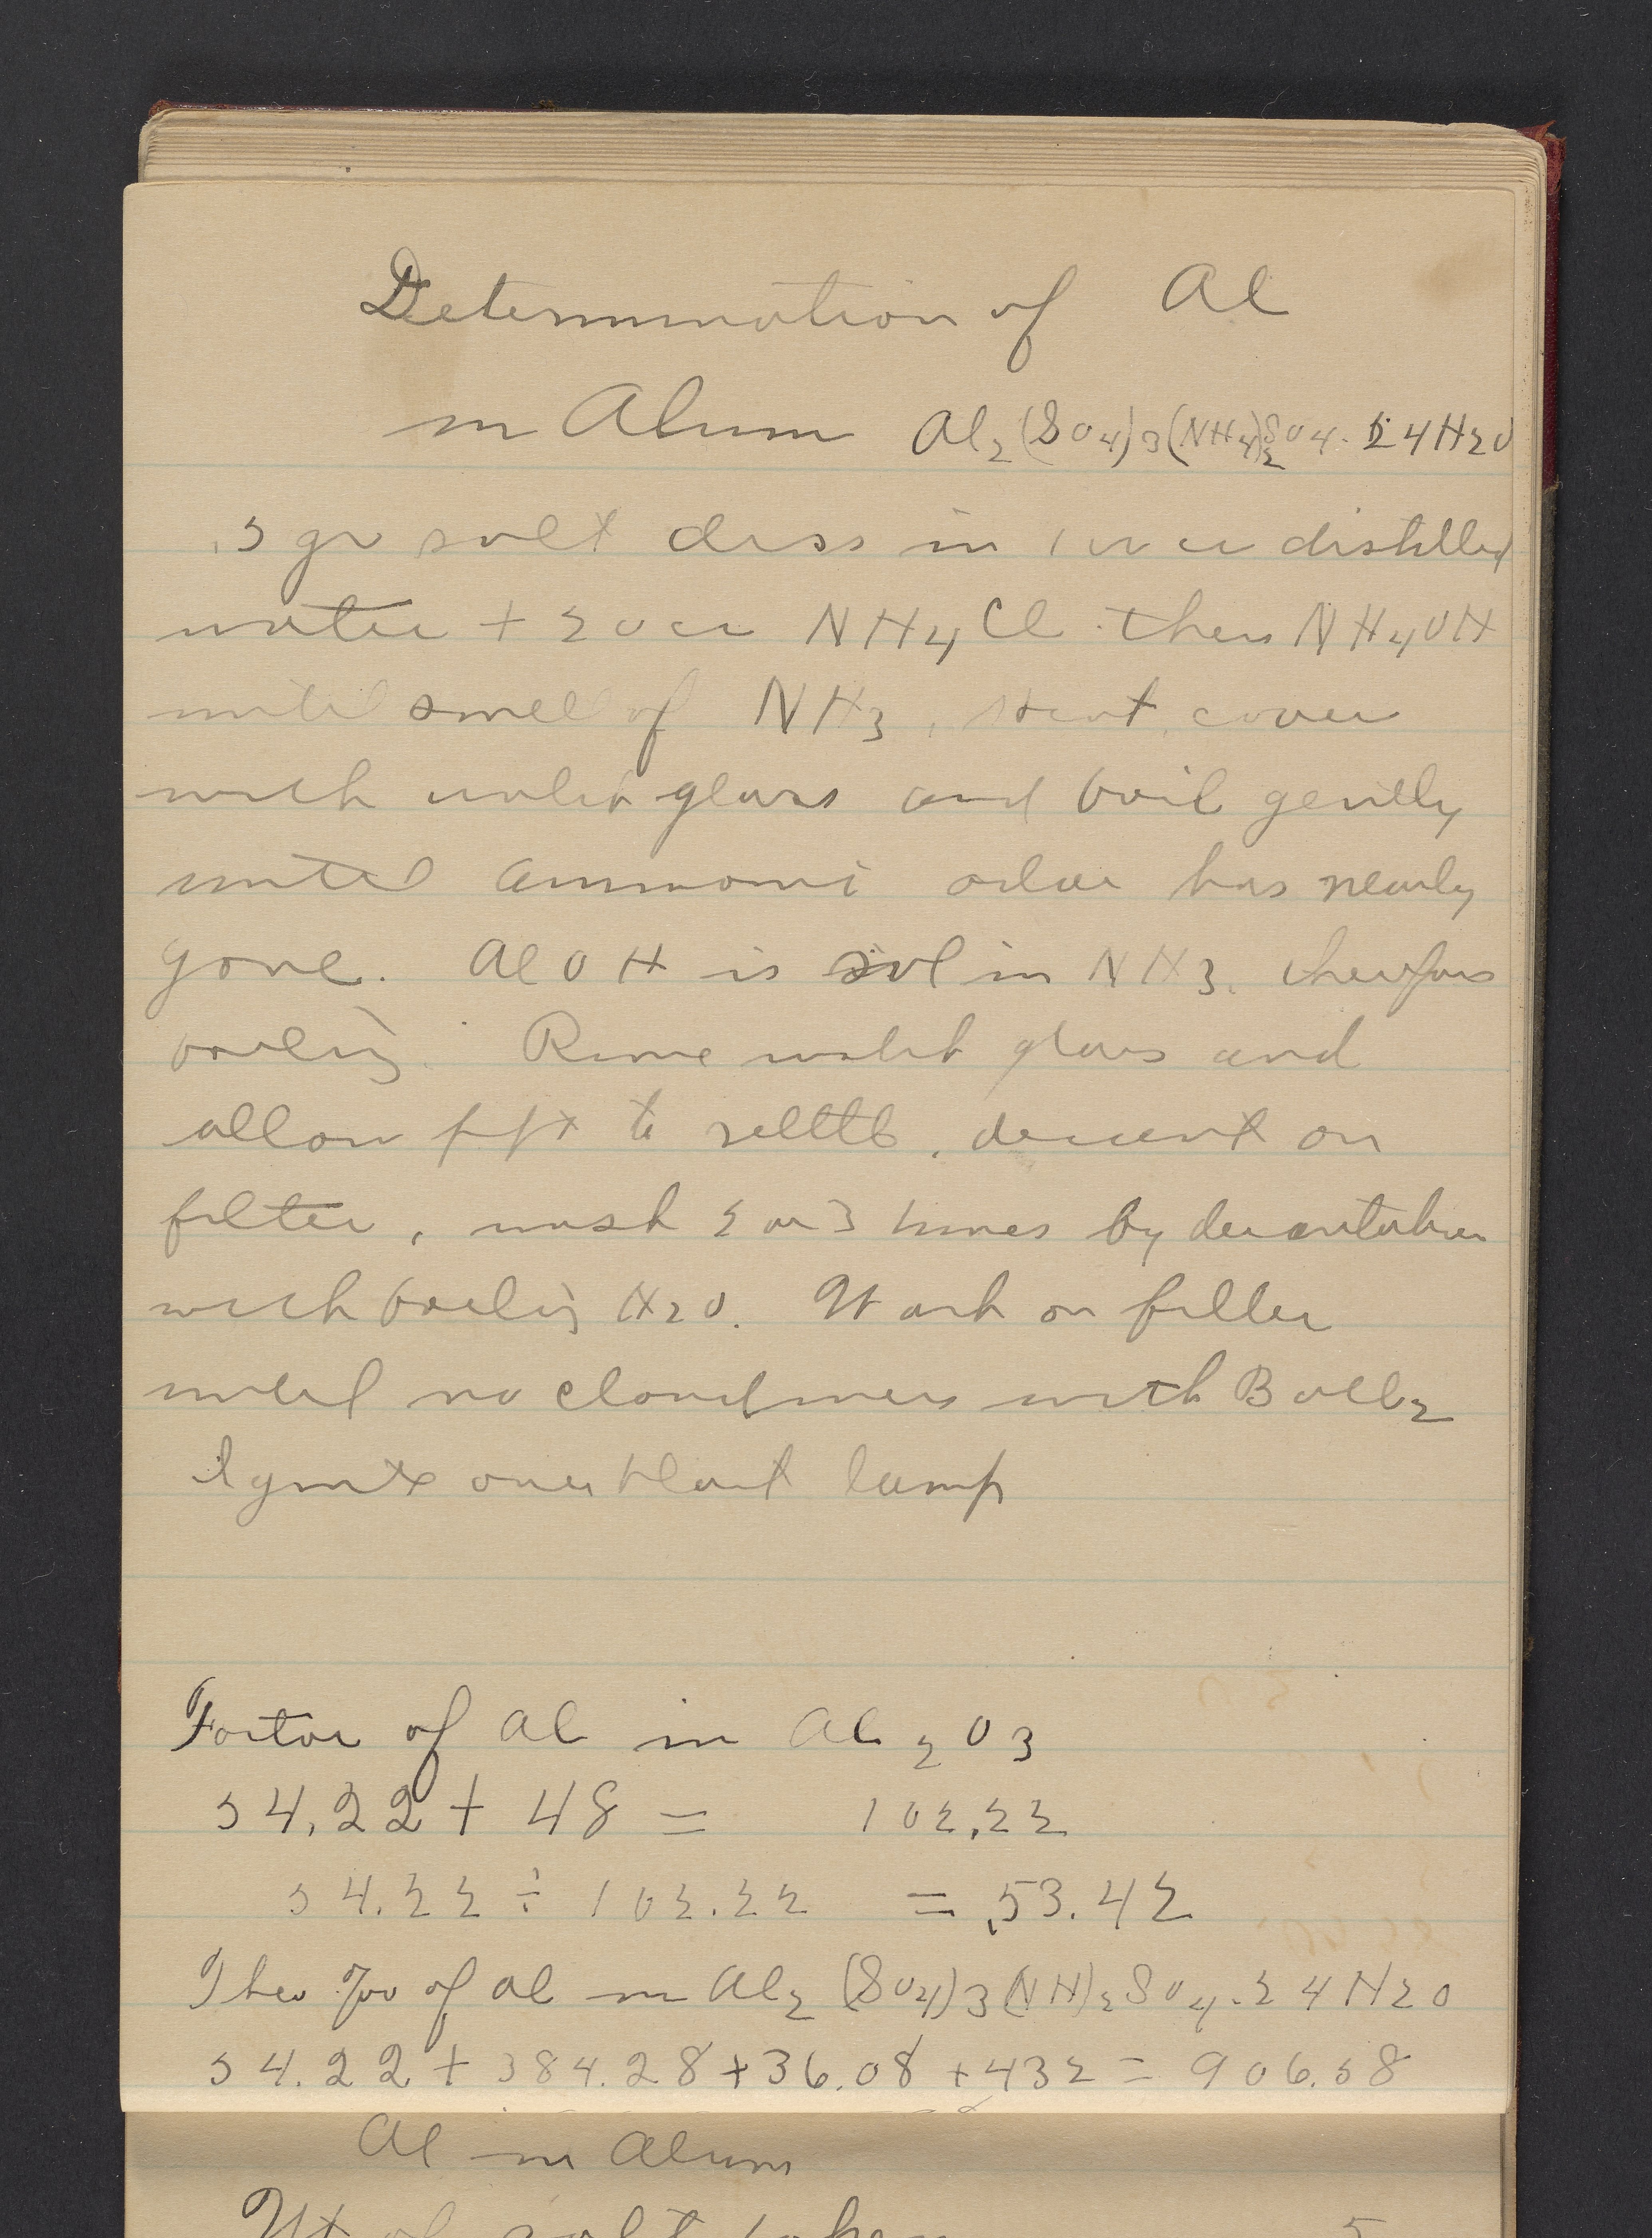 Determination of Al
in Alum Al2(SO4)3(NH4)2SO4. 24H2O
.5 gr salt diss in 100 cc distilled
water + 20 cc NH4Cl then NH4OH
until smell of NH3, heat, cover
with watch glass and boil gently
until ammoni odor has nearly
gone. AlOH is sol in NH3. therefore
boiling. Rinse watch glass and
allow ppt to settle, decant on
filter, wash 2 or 3 times by decantation
with boiling H2O. Wash on filter
until no cloudiness with BaCl2
Ignite over blast lamp
Factor of Al in Al2O3
54.22 + 48 = 102.22
54.22 ÷ 102.22 = .53.42
Theo % of Al in Al2(SO4)3(NH)2SO4.24H2O
54.22 + 384.28 + 36.08 + 432 = 906.58
Al in Alum
Wt of salt taken 5